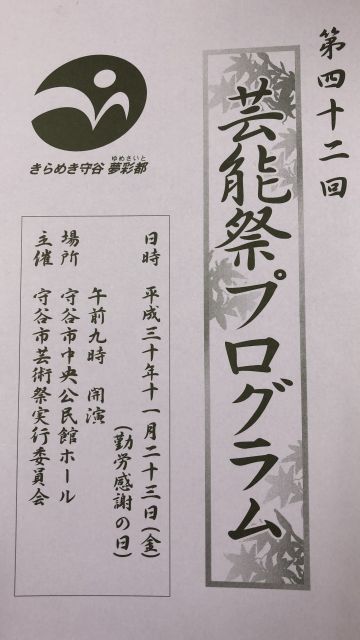 第四十二回
芸能祭プログラム
きらめき守谷 夢彩都
ゆめさいと
日時 平成三十年十一月二十三日(金)
(勤労感謝の日)
午前九時 開演
場所 守谷市中央公民館ホール
主催 守谷市芸術祭実行委員会